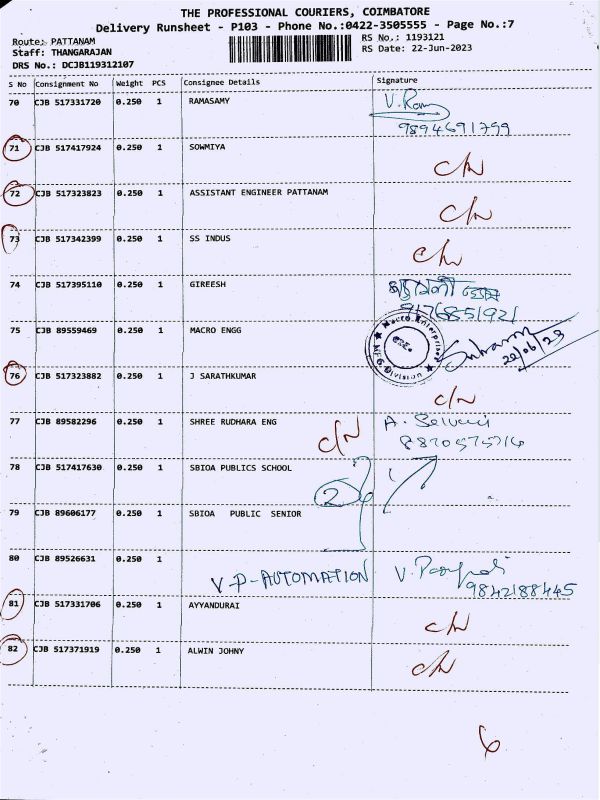 THE PROFESSIONAL COURIERS, COIMBATORE
Delivery Runsheet - P103 - Phone No.:0422-3505555 - Page No.:7
Route: PATTANAM
RS No.: 1193121
Staff: THANGARAJAN
RS Date: 22-Jun-2023
DRS No.: DCJB119312107
S No Consignment No Weight PCS Consignee Details Signature
70 CJB 517331720 0.250 1 RAMASAMY V. Ram
9894691799
71 CJB 517417924 0.250 1 SOWMIYA
C/N
72 CJB 517323823 0.250 1 ASSISTANT ENGINEER PATTANAM
C/N
73 CJB 517342399 0.250 1 SS INDUS
C/N
74 CJB 517395110 0.250 1 GIREESH
9176851921
75 CJB 89559469 0.250 1 MACRO ENGG
Macro Enterprises
MFG Division
22/06/23
76 CJB 517323882 0.250 1 J SARATHKUMAR
C/N
77 CJB 89582296 0.250 1 SHREE RUDHARA ENG C/N A. Selvani
78 CJB 517417630 0.250 1 SBIOA PUBLICS SCHOOL
2
79 CJB 89606177 0.250 1 SBIOA PUBLIC SENIOR
80 CJB 89526631 0.250 1
V-P-AUTOMATION
9842188445
81 CJB 517331706 0.250 1 AYYANDURAI
C/N
82 CJB 517371919 0.250 1 ALWIN JOHNY
C/N
6